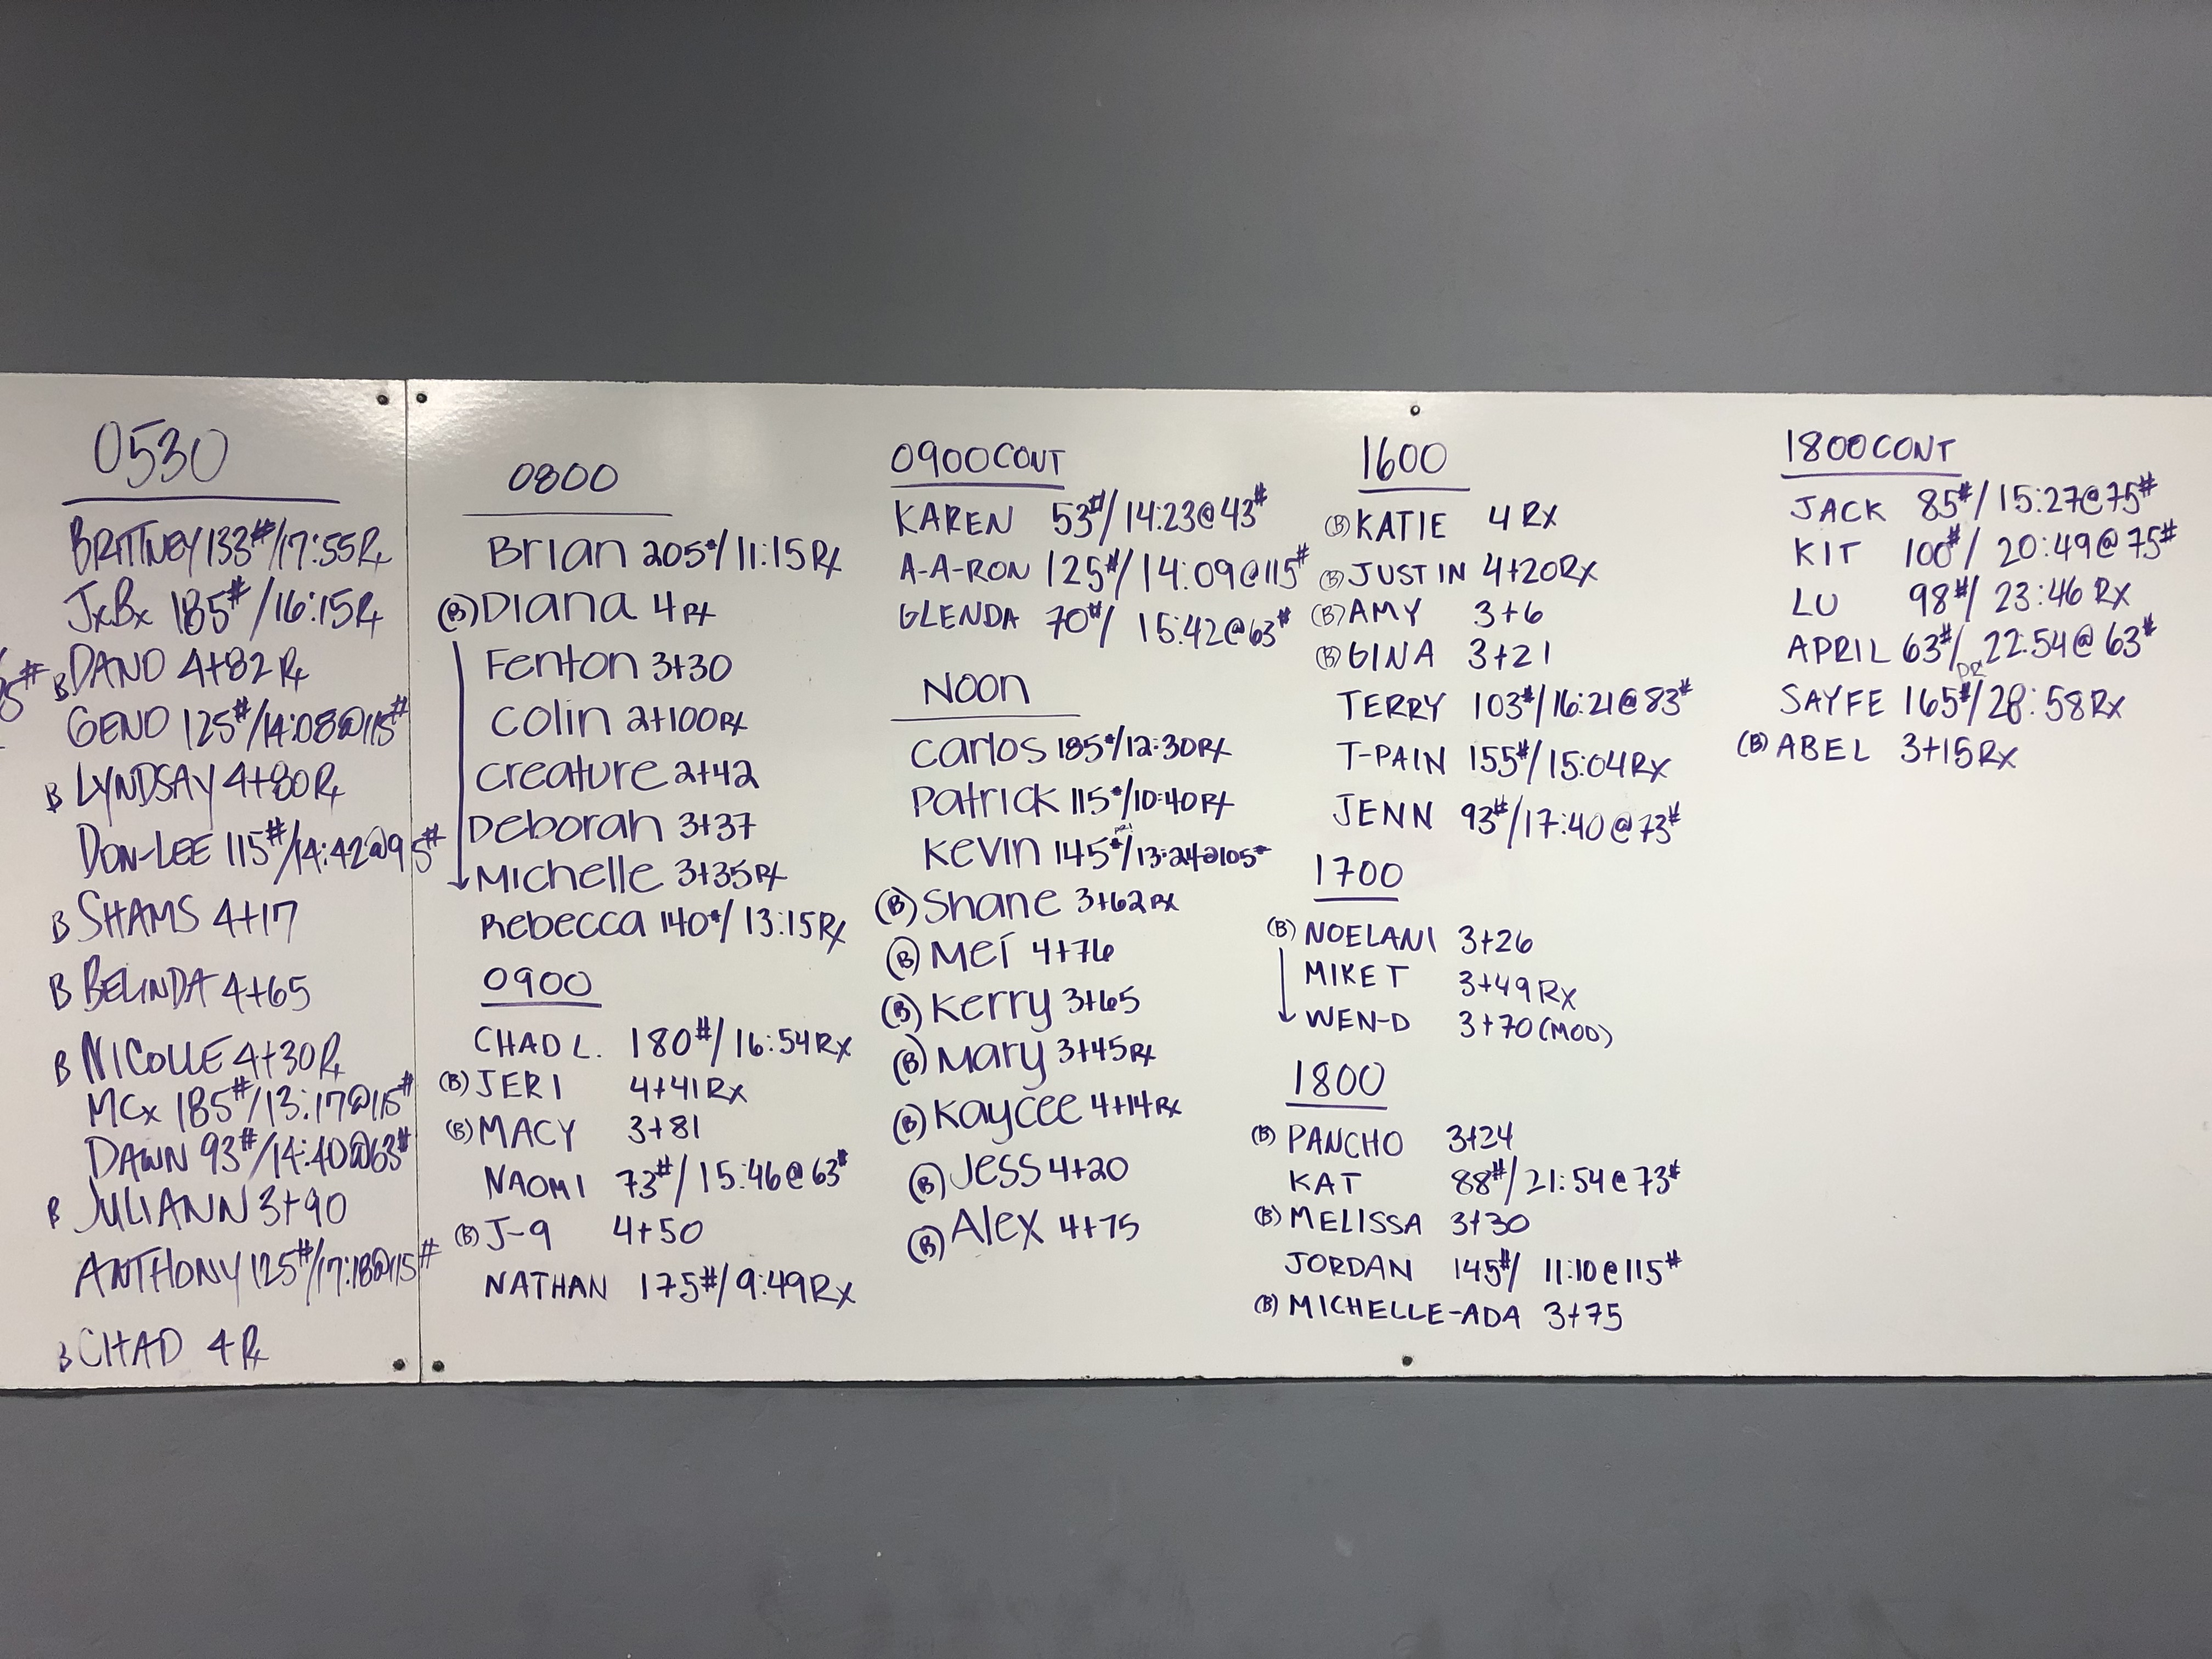 0530
BRITTNEY 133#/17:55Rx
JxBx 185#/16:15Rx
5#
B DANO 4+82Rx
GENO 125#/14:08@115#
B LYNDSAY 4+80Rx
DON-LEE 115#/14:42@95#
B SHAMS 4+17
B BELINDA 4+65
B NICOLLE 4+30Rx
MCx 185#/13:17@115#
DAWN 93#/14:40@63#
B JULIANN 3+90
ANTHONY 125#/17:18@115#
B CHAD 4Rx
0800
Brian 205#/11:15Rx
(B) Diana 4Rx
Fenton 3+30
Colin 2+100Rx
Creature 2+42
Deborah 3+37
Michelle 3+35Rx
Rebecca 140#/13:15Rx
0900
CHAD L. 180#/16:54Rx
(B) JERI 4+41Rx
(B) MACY 3+81
NAOMI 73#/15:46@63#
(B) J-9 4+50
NATHAN 175#/9:49Rx
0900CONT
KAREN 53#/14:23@43#
A-A-RON 125#/14:09@115#
GLENDA 70#/15:42@63#
NOON
Carlos 185#/12:30Rx
Patrick 115#/10:40Rx
Kevin 145#/13:24@105#
(B) Shane 3+62Rx
(B) Mei 4+76
(B) Kerry 3+65
(B) Mary 3+45Rx
(B) Kaycee 4+14Rx
(B) Jess 4+20
(B) Alex 4+75
1600
(B) KATIE 4Rx
(B) JUSTIN 4+20Rx
(B) AMY 3+6
(B) GINA 3+21
TERRY 103#/16:21@83#
T-PAIN 155#/15:04Rx
JENN 93#/17:40@73#
1700
(B) NOELANI 3+26
MIKE T 3+49Rx
WEN-D 3+70(MOD)
1800
(B) PANCHO 3+24
KAT 88#/21:54@73#
(B) MELISSA 3+30
JORDAN 145#/11:10@115#
(B) MICHELLE-ADA 3+75
1800CONT
JACK 85#/15:27@75#
KIT 100#/20:49@75#
LU 98#/23:46Rx
APRIL 63#/22:54@63#
PR
SAYFE 165#/28:58Rx
(B) ABEL 3+15Rx